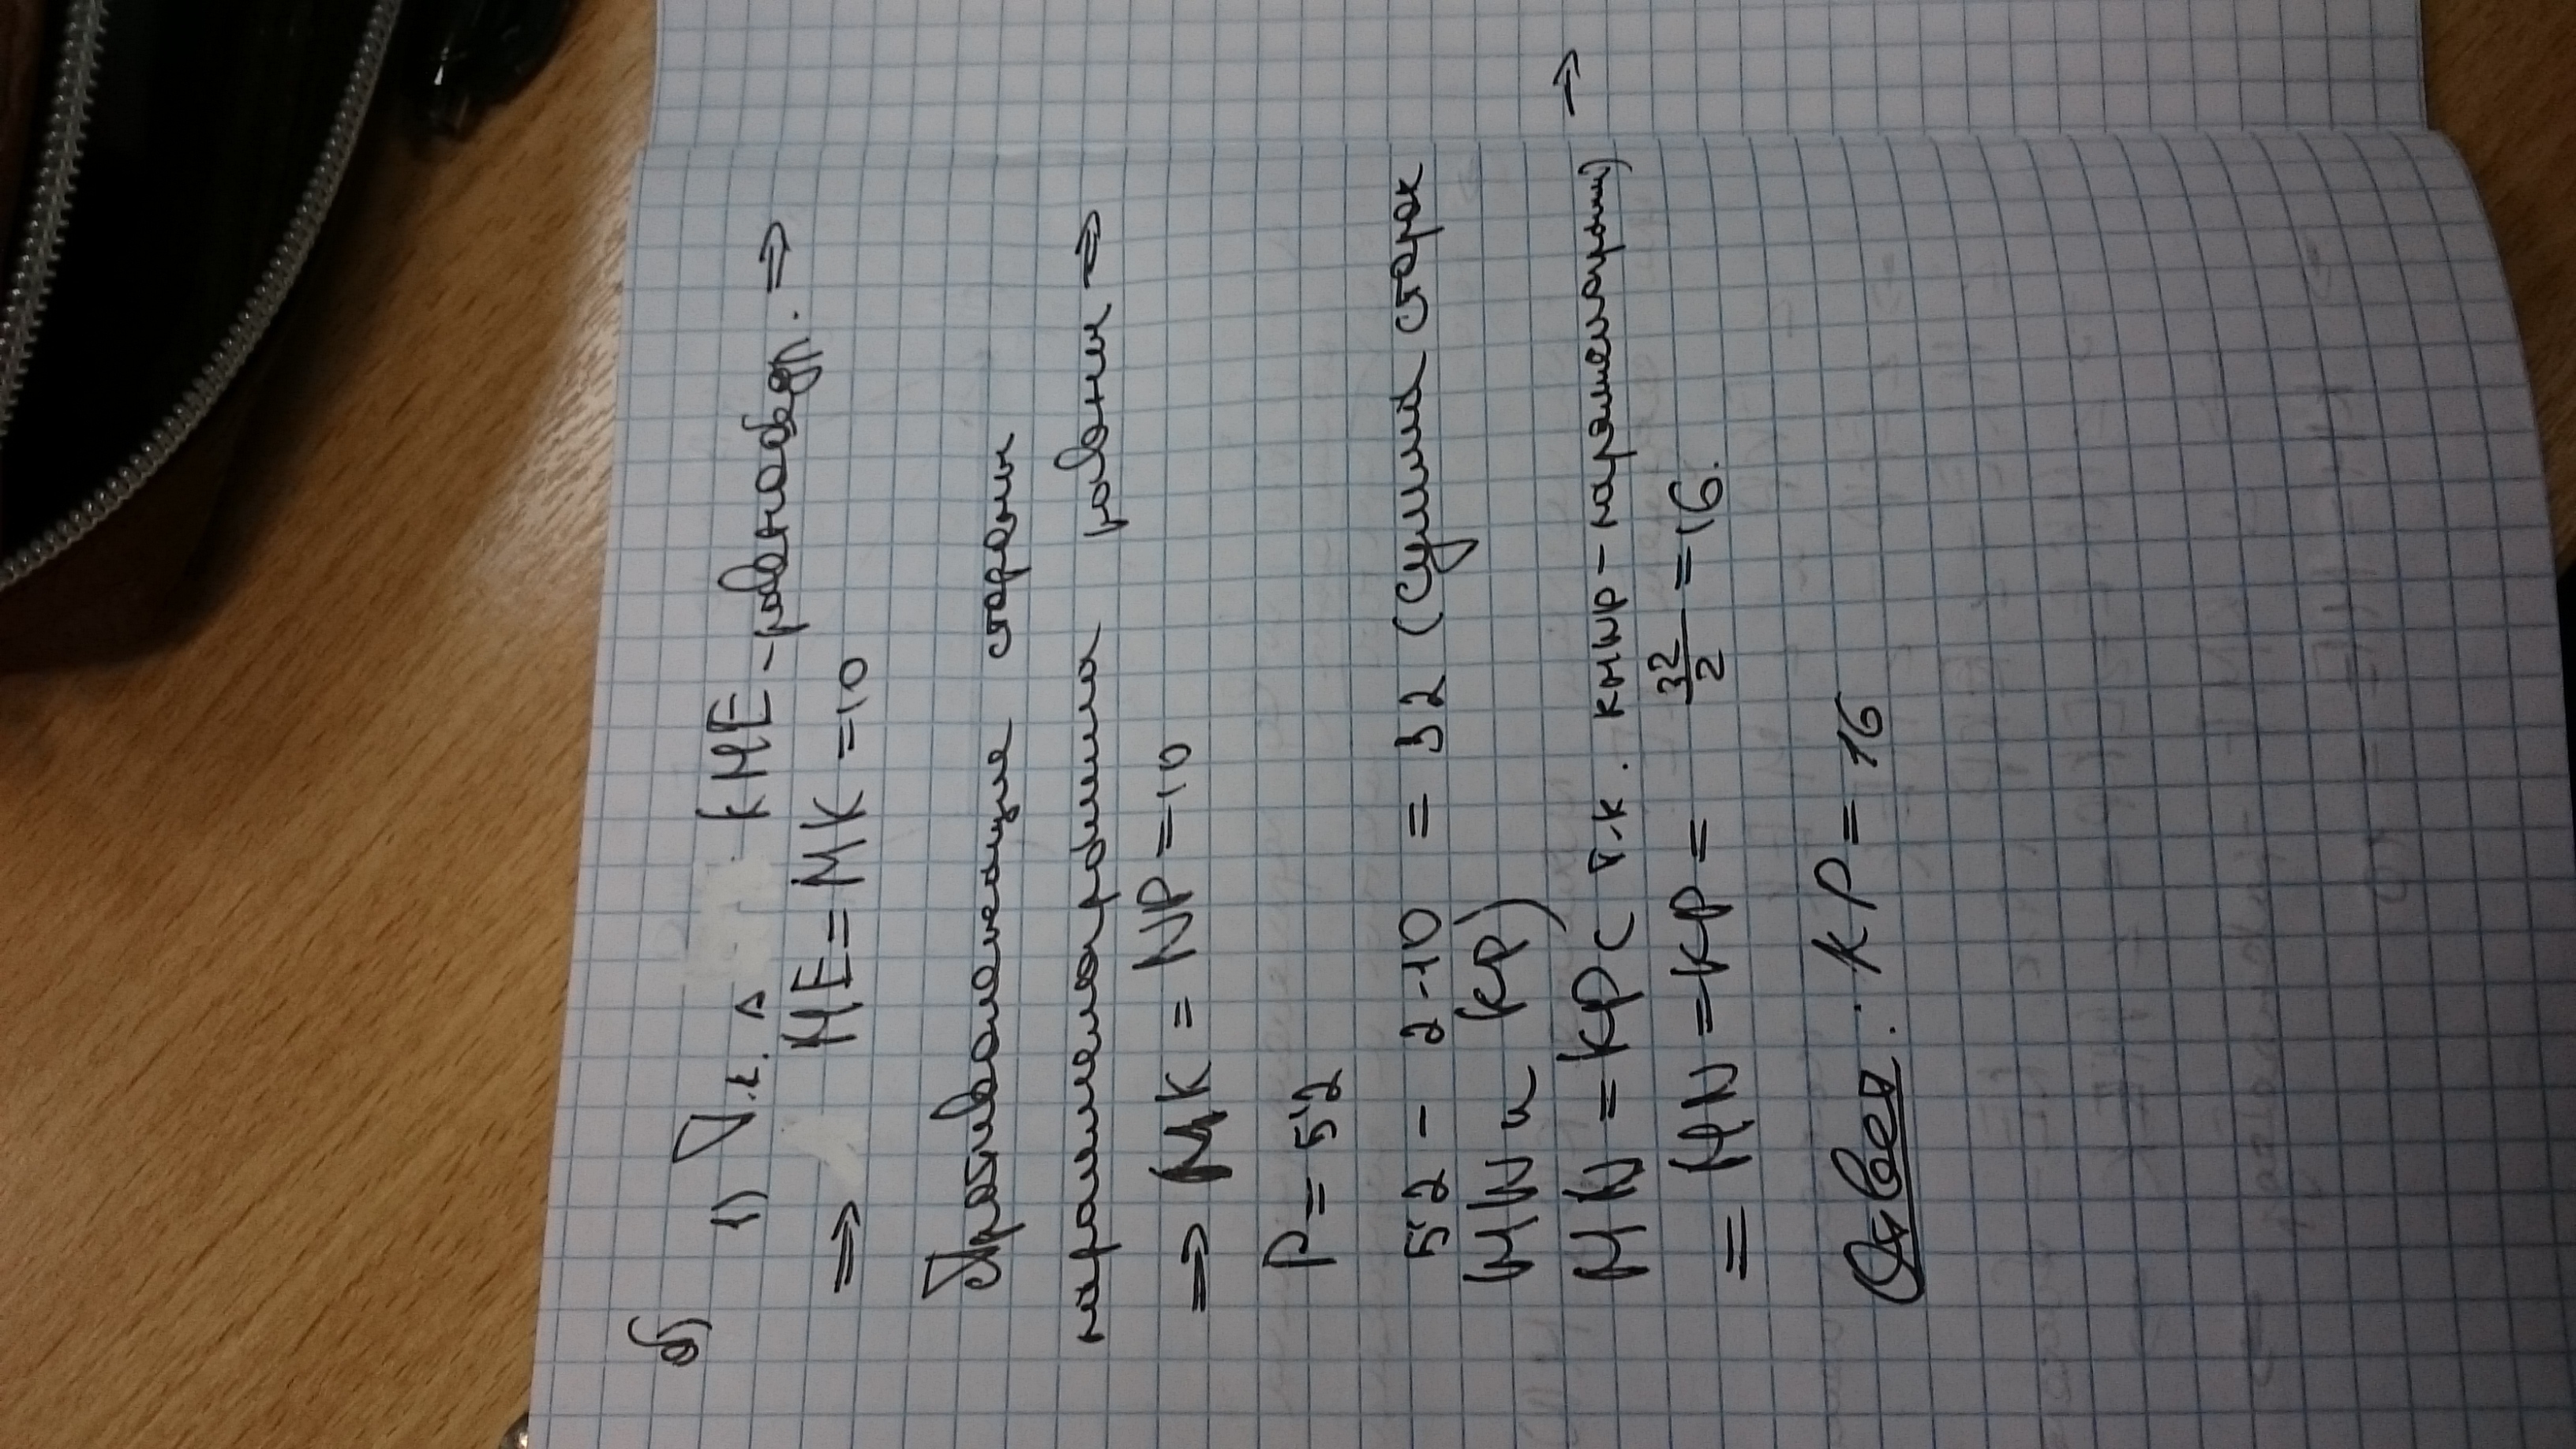 б)
1) Т.к. △ KME - равнобедр. ⇒
⇒ ME = MK = 10
Противолежащие стороны
параллелограмма равны ⇒
⇒ MK = NP = 10
P = 52
52 - 2·10 = 32 (Сумма сторон
MN и KP)
MN = KP ( т.к. KMNP - параллелограмм) ⇒
= MN = KP = 32/2 = 16.
Ответ: KP = 16